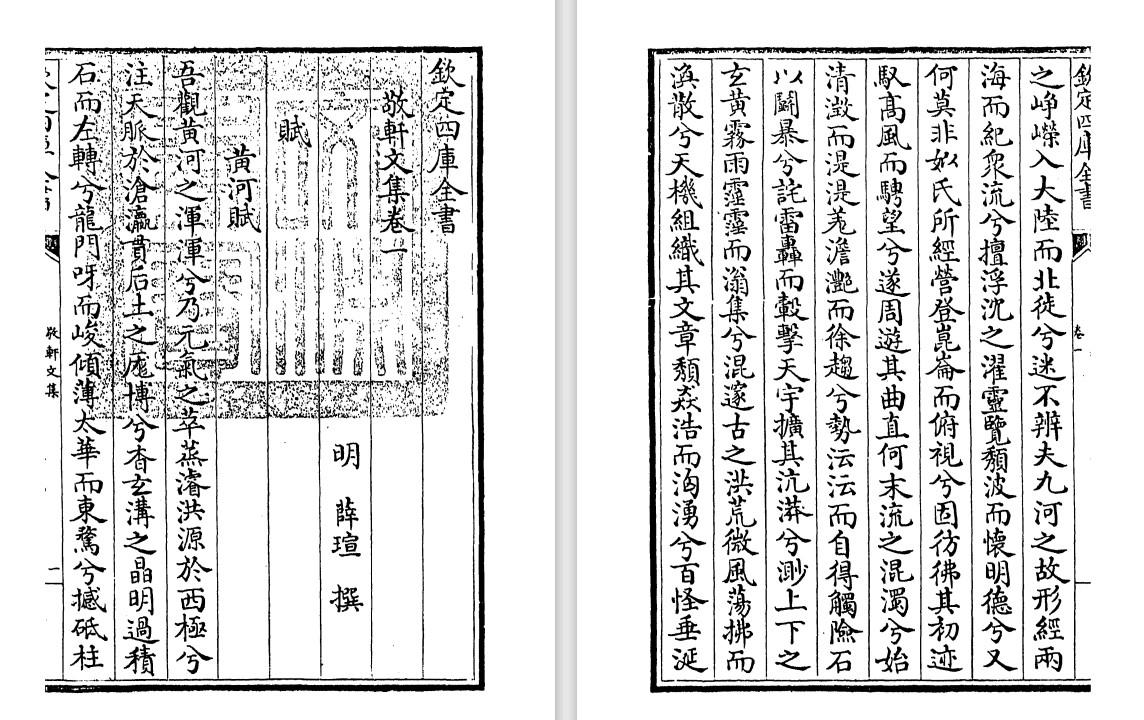 欽定四庫全書
敬軒文集卷一
明 薛瑄 撰
賦
黄河賦
吾觀黄河之渾渾兮乃元氣之萃蒸濬洪源於西極兮
注天脈於滄瀛貫后土之龎博兮杳玄溝之晶明過積
石而左轉兮龍門呀而峻傾薄太華而東騖兮撼砥柱
敬軒文集
欽定四庫全書
卷一
之崢嶸入大陸而北徙兮迷不辨夫九河之故形經兩
海而紀衆流兮擅浮沈之濯靈覽頽波而懷明德兮又
何莫非姒氏所經營登崑崙而俯視兮固彷彿其初迹
馭髙風而騁望兮遂周遊其曲直何末流之混濁兮始
清澂而湜湜羌澹灔而徐趨兮勢沄沄而自得觸險石
以鬭暴兮詫雷轟而轂擊天宇擴其沆漭兮渺上下之
玄黄霧雨霪霪而滃集兮混邃古之洪荒微風蕩拂而
渙散兮天機組織其文章頽焱浩而洶湧兮百怪垂涎